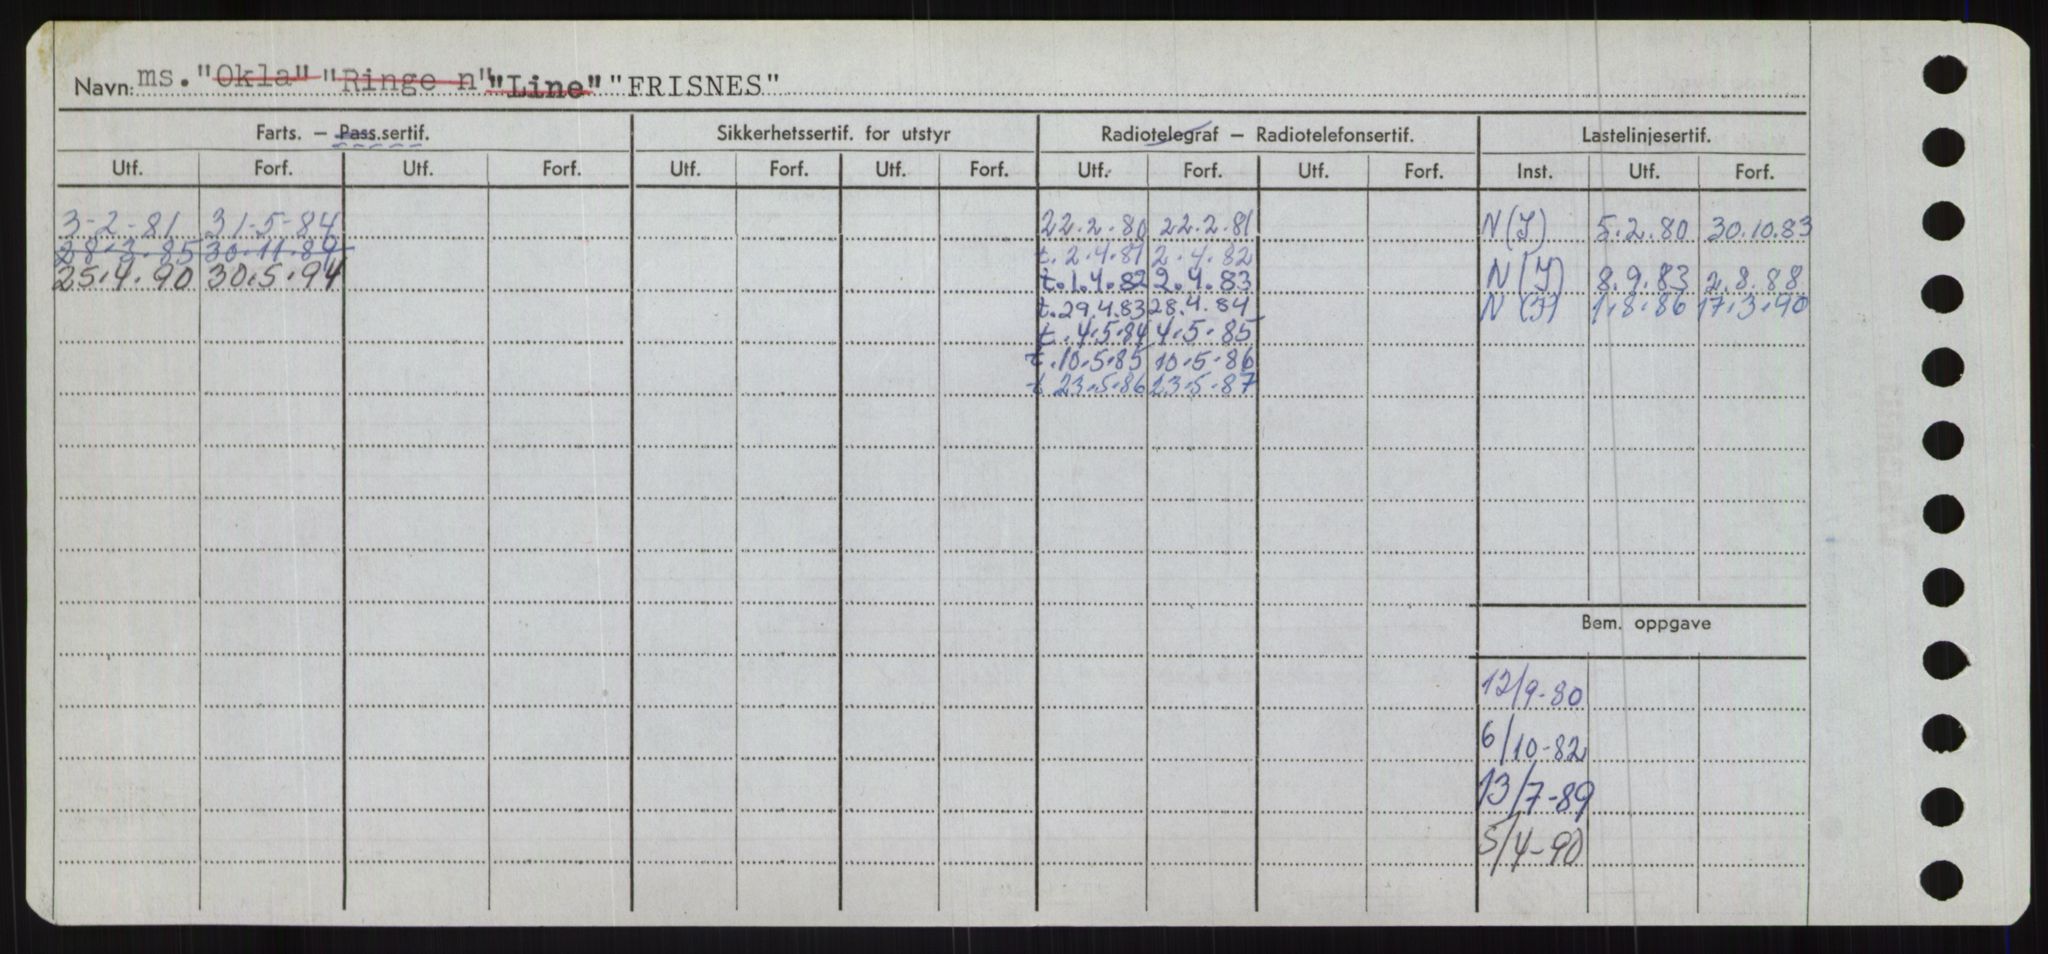 Navn: ms. "Okla" "Ringe n" "Line" "FRISNES"
Farts. — Pass.sertif. Sikkerhetssertif. for utstyr Radiotelegraf — Radiotelefonsertif. Lastelinjesertif.
Utf. Forf. Utf. Forf. Utf. Forf. Utf. Forf. Utf. Forf. Utf. Forf. Inst. Utf. Forf.
3-2-81 31-5-84 22.2.80 22.2.81 N(I) 5.2.80 30.10.83
28.2.85 30.11.89 t. 2.4.81 2.4.82
25.4.90 30.5.94 t.1.4.82 2.4.83 N(I) 8.9.83 2.8.88
t.29.4.83 28.4.84 N(I) 1.8.86 17.3.90
t.4.5.84 4.5.85
t.10.5.85 10.5.86
t 23.5.86 23.5.87
Bem. oppgave
12/9-80
6/10-82
13/7-89
5/4-90